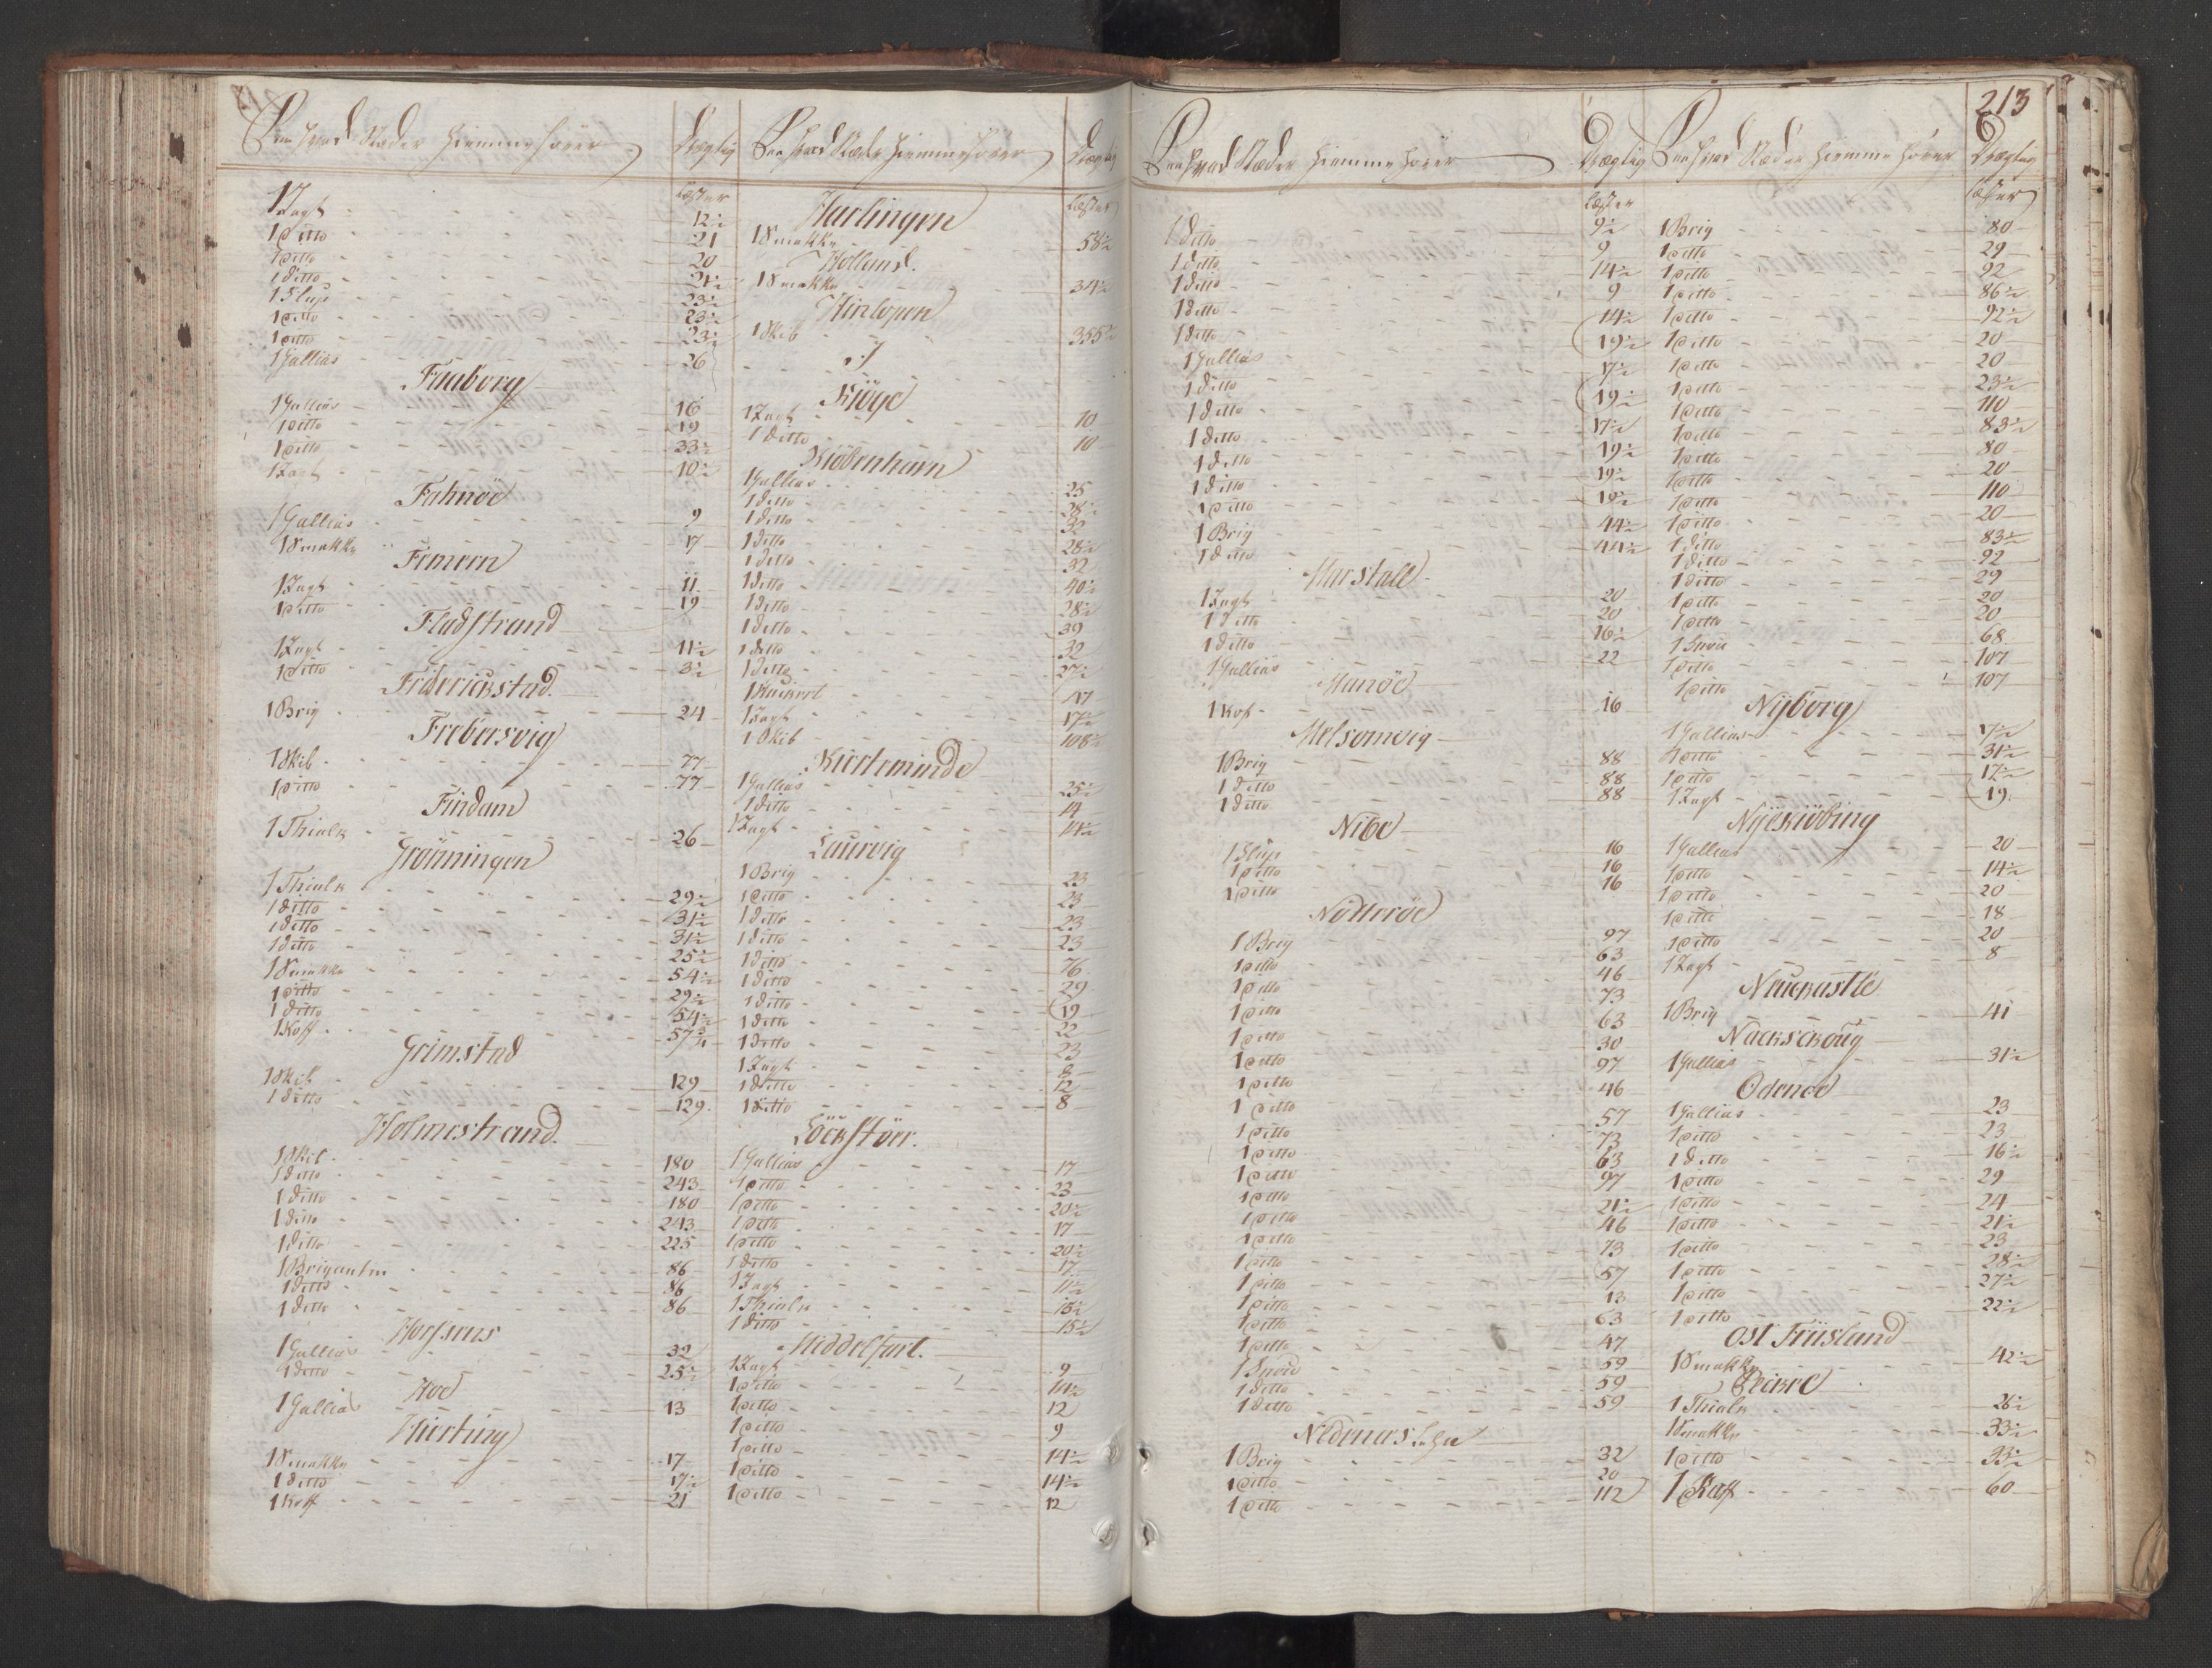 Paa hvad Stæder hiemmehörer
Drægtig
Læster
1 Jagt 12½
1 Ditto 21
1 Ditto 20
1 Ditto 21½
1 Slup 23½
1 Ditto 23½
1 Ditto 23½
1 Gallias 26
Faaborg
1 Gallias 16
1 Ditto 19
1 Ditto 33½
1 Jagt 10½
Fahnöe
1 Gallias 9
1 Smakke 17
Femern
1 Jagt 11
1 Ditto 19
Fladstrand
1 Jagt 11½
1 Ditto 3½
Friderickstad
1 Brig 24
Frebersvig
1 Skib 77
1 Ditto 77
Findam
1 Thialk 26
Grönningen
1 Thialk 29½
1 Ditto 31½
1 Ditto 31½
1 Ditto 25½
1 Smakke 54½
1 Ditto 29½
1 Ditto 54½
1 Koff 57
Grimstad
1 Skib 129
1 Ditto 129
Holmestrand
1 Skib 180
1 Ditto 243
1 Ditto 180
1 Ditto 243
1 Ditto 225
1 Brigantin 86
1 Ditto 86
1 Ditto 86
Horsens
1 Gallias 32
1 Ditto 25½
Hoe
1 Gallias 13
Hierting
1 Smakke 17
1 Ditto 17½
1 Koff 21
Paa hvad Stæder hiemmehörer
Drægtig
Læster
Harlingen
1 Smakke 58½
Holland
1 Smakke 34½
Hinlopen
1 Skib 355½
J
Kiöge
1 Jagt 10
1 Ditto 10
Kiöbenhavn
1 Gallias 25
1 Ditto 28½
1 Ditto 32
1 Ditto 28½
1 Ditto 32
1 Ditto 40½
1 Ditto 28½
1 Ditto 39
1 Ditto 32
1 Ditto 27½
1 Kuckert 17
1 Jagt 17½
1 Skib 108½
Kierteminde
1 Gallias 25½
1 Ditto 14
1 Jagt 14½
Laurvig
1 Brig 23
1 Ditto 23
1 Ditto 23
1 Ditto 23
1 Ditto 76
1 Ditto 29
1 Ditto 19
1 Ditto 22
1 Ditto 23
1 Jagt 8
1 Ditto 12
1 Ditto 8
Löckstörr
1 Gallias 17
1 Ditto 23
1 Ditto 20½
1 Ditto 17
1 Ditto 20½
1 Ditto 17
1 Jagt 11½
1 Thialk 15½
1 Ditto 15½
Middelfart
1 Jagt 9
1 Ditto 14½
1 Ditto 12
1 Ditto 9
1 Ditto 14½
1 Ditto 14½
1 Ditto 12
Paa hvad Stæder hiemmehörer
Drægtig
Læster
1 Ditto 9½
1 Ditto 9
1 Ditto 14½
1 Ditto 9
1 Ditto 14½
1 Gallias 19½
1 Ditto 17½
1 Ditto 19½
1 Ditto 17½
1 Ditto 19½
1 Ditto 19½
1 Ditto 19½
1 Brig 44½
1 Ditto 44½
Marstall
1 Jagt 20
1 Ditto 20
1 Ditto 16½
1 Gallias 22
Manöe
1 Kof 16
Melsomvig
1 Brig 88
1 Ditto 88
1 Ditto 88
Nibe
1 Slup 16
1 Ditto 16
1 Ditto 16
Nötteröe
1 Brig 97
1 Ditto 63
1 Ditto 46
1 Ditto 73
1 Ditto 63
1 Ditto 30
1 Ditto 97
1 Ditto 46
1 Ditto 57
1 Ditto 73
1 Ditto 63
1 Ditto 97
1 Ditto 21½
1 Ditto 46
1 Ditto 73
1 Ditto 57
1 Ditto 13
1 Ditto 63
1 Ditto 47
1 Snow 59
1 Ditto 59
1 Ditto 59
Nedenes Lehn
1 Brig 32
1 Ditto 20
1 Ditto 112
213
Paa hvad Stæder hiemmehörer
Drægtig
Læster
1 Brig 80
1 Ditto 29
1 Ditto 92
1 Ditto 86½
1 Ditto 92½
1 Ditto 20
1 Ditto 20
1 Ditto 23½
1 Ditto 110
1 Ditto 83½
1 Ditto 80
1 Ditto 20
1 Ditto 110
1 Ditto 20
1 Ditto 83½
1 Ditto 92
1 Ditto 29
1 Ditto 20
1 Ditto 20
1 Snow 68
1 Ditto 107
1 Ditto 107
Nyborg
1 Gallias 17½
1 Ditto 31½
1 Ditto 17½
1 Jagt 19
Nyekiöbing
1 Gallias 20
1 Ditto 14½
1 Ditto 20
1 Ditto 18
1 Ditto 20
1 Jagt 8
Neuckastle
1 Brig 41
Nackschoug
1 Gallias 31½
Odense
1 Gallias 23
1 Ditto 23
1 Ditto 16½
1 Ditto 29
1 Ditto 24
1 Ditto 21½
1 Ditto 23
1 Ditto 28½
1 Ditto 27½
1 Ditto 22½
Ost Friisland
1 Smakke 42½
1 Thialk 26½
1 Smakke 33½
1 Ditto 33½
1 Koff 60